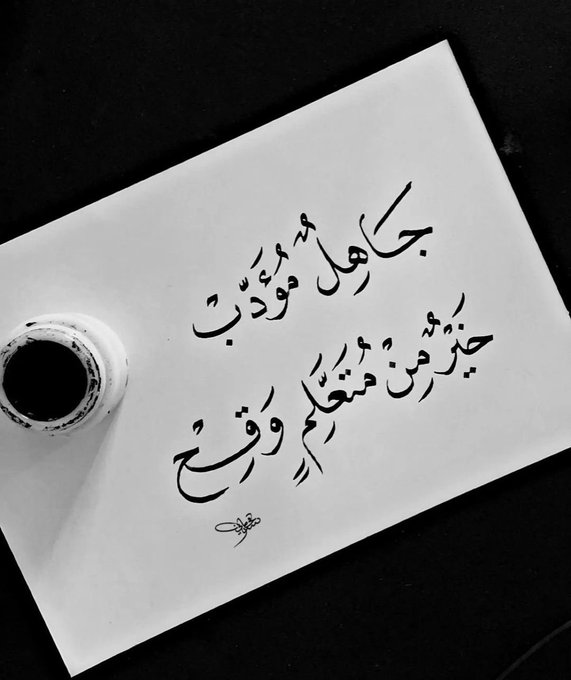 جَاهِلٌ مُؤَدَّبْ
خَيْرٌ مِنْ مُتَعَلِّمٍ وَقِحْ